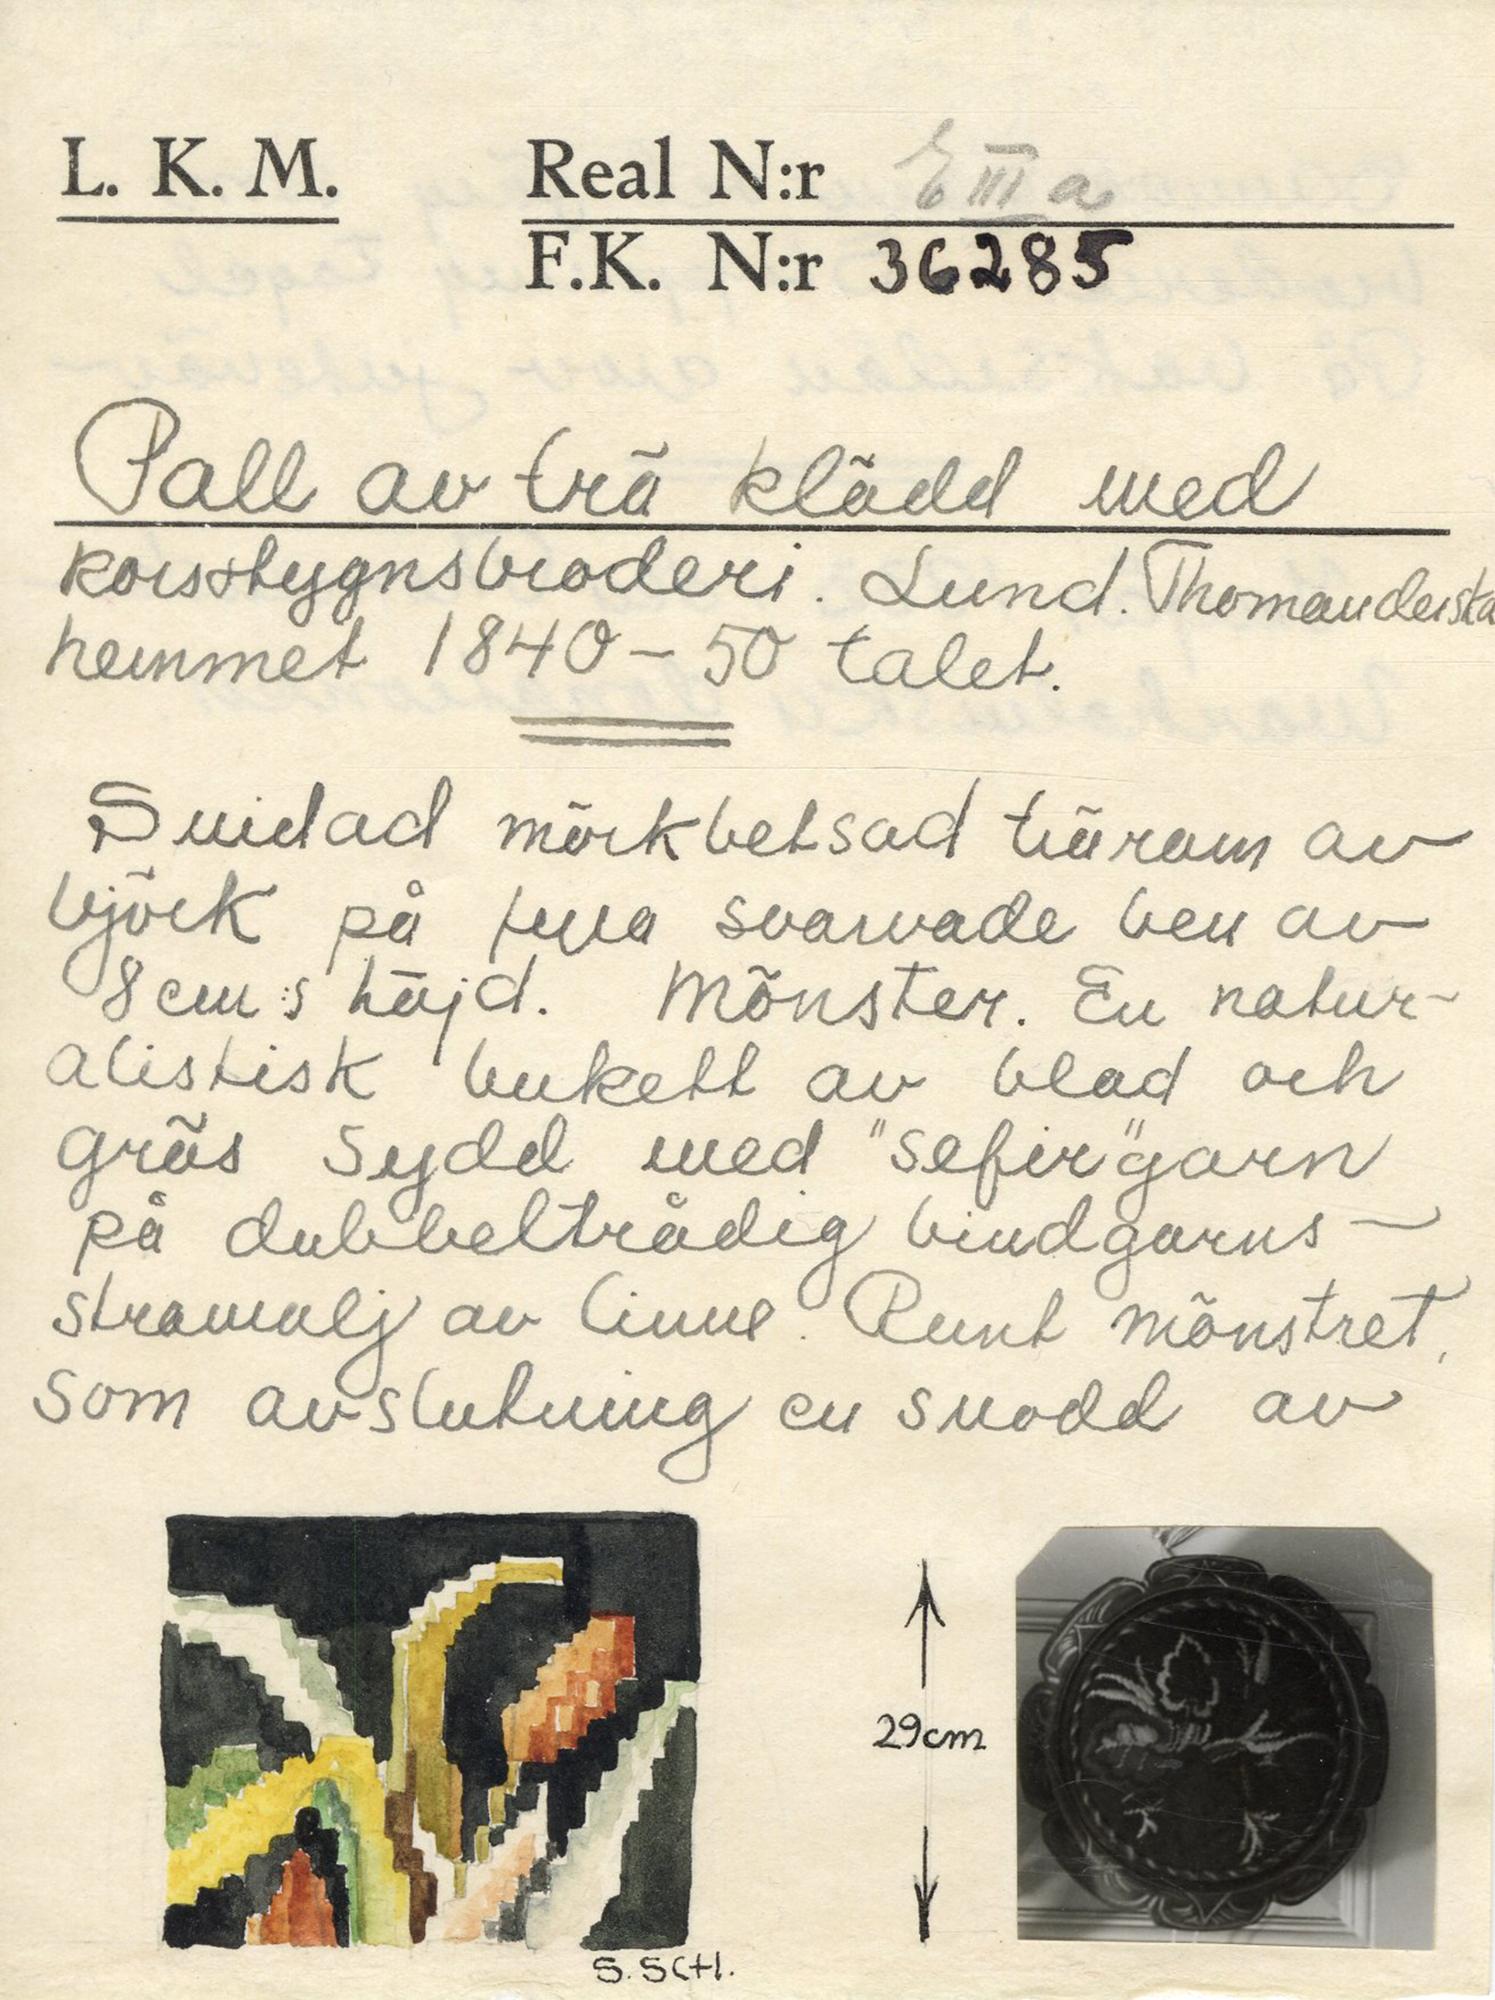 L. K. M.
Real N:r E III a
F.K. N:r 36285
Pall av trä klädd med
korsstygnsbroderi. Lund. Thomanderska
hemmet 1840-50 talet.
Snidad mörkbetsad träram av
björk på fyra svarvade ben av
8 cm:s höjd. Mönster. En natur-
alistisk bukett av blad och
gräs sydd med "sefir"garn
på dubbeltrådig bindgarns-
stramalj av linne. Runt mönstret,
som avslutning en snodd av
29cm
S. SCH.